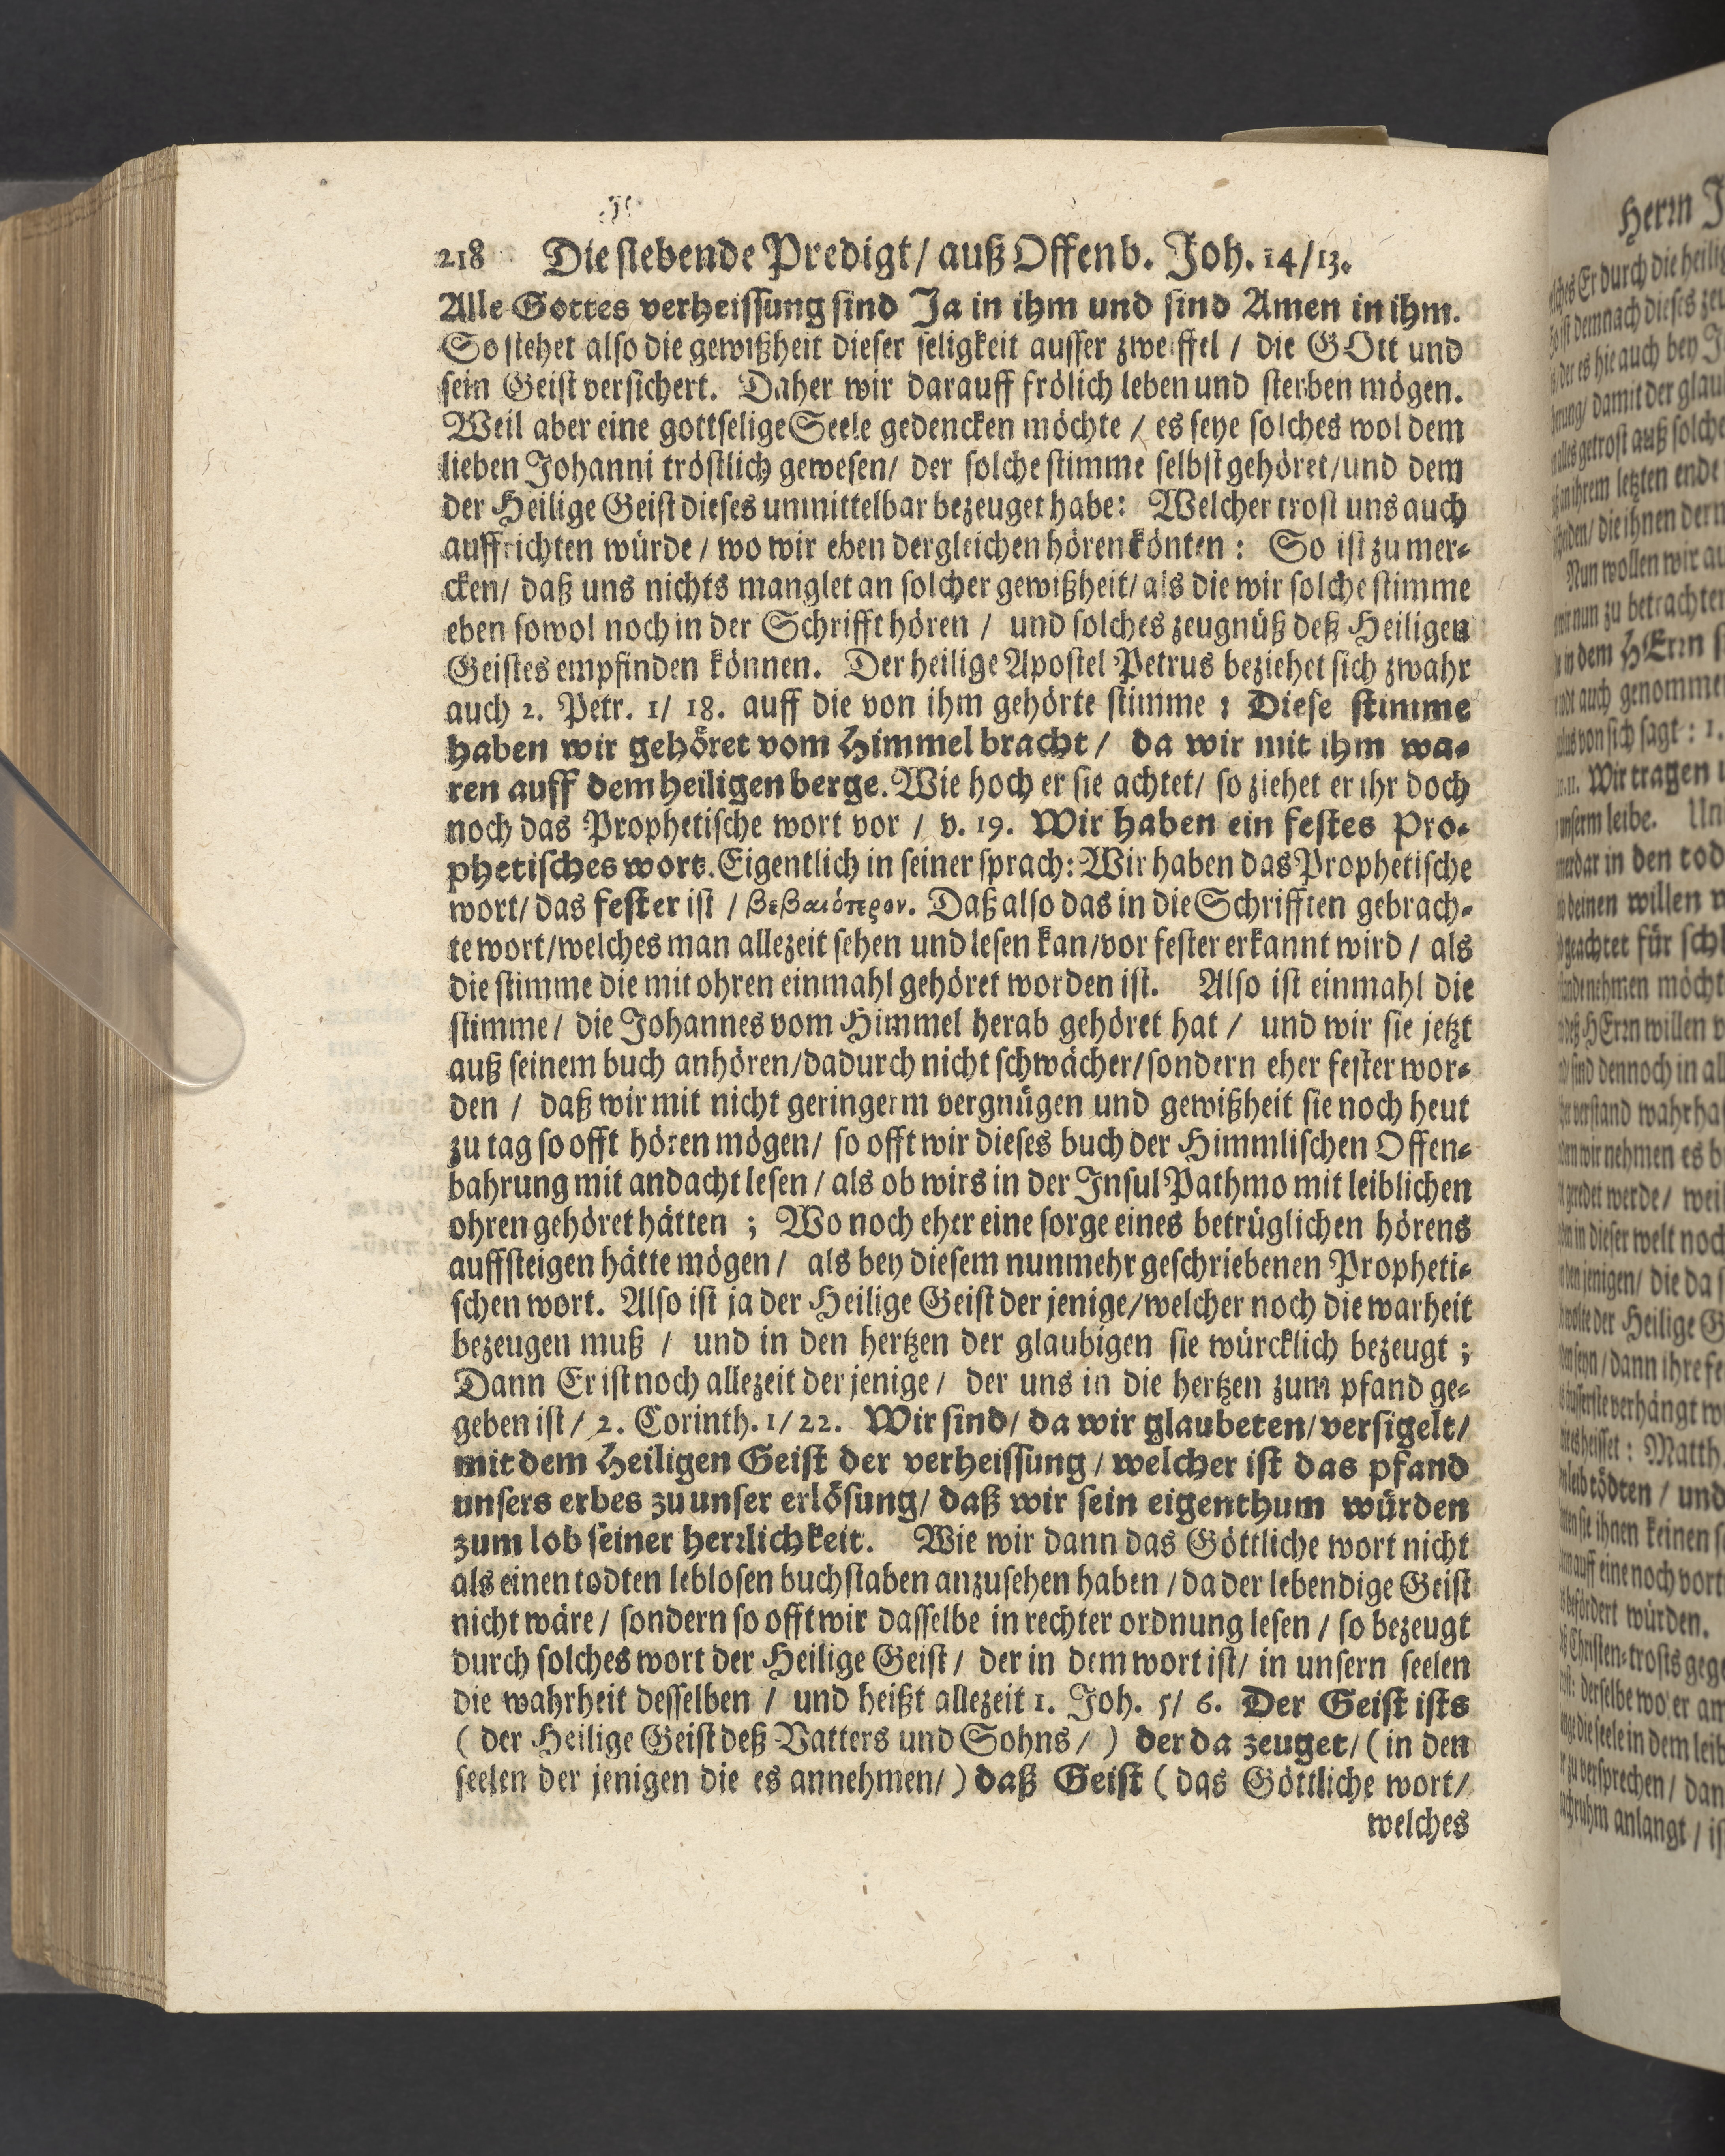 218 Die siebende Predigt / auß Offenb. Joh. 14/13.
Alle Gottes verheissung sind Ja in ihm und sind Amen in ihm.
So stehet also die gewißheit dieser seligkeit ausser zweiffel / die GOtt und
sein Geist versichert. Daher wir darauff frölich leben und sterben mögen.
Weil aber eine gottselige Seele gedencken möchte / es seye solches wol dem
lieben Johanni tröstlich gewesen / der solche stimme selbst gehöret / und dem
der Heilige Geist dieses unmittelbar bezeuget habe: Welcher trost uns auch
auffrichten würde / wo wir eben dergleichen hören könten: So ist zu mer-
cken / daß uns nichts manglet an solcher gewißheit / als die wir solche stimme
eben sowol noch in der Schrifft hören / und solches zeugnüß deß Heiligen
Geistes empfinden können. Der heilige Apostel Petrus beziehet sich zwahr
auch 2. Petr. 1/ 18. auff die von ihm gehörte stimme: Diese stimme
haben wir gehöret vom Himmel bracht / da wir mit ihm wa-
ren auff dem heiligen berge. Wie hoch er sie achtet / so ziehet er ihr doch
noch das Prophetische wort vor / v. 19. Wir haben ein festes Pro-
phetisches wort. Eigentlich in seiner sprach: Wir haben das Prophetische
wort / das fester ist / βεβαιότερον. Daß also das in die Schrifften gebrach-
te wort / welches man allezeit sehen und lesen kan / vor fester erkannt wird / als
die stimme die mit ohren einmahl gehöret worden ist. Also ist einmahl die
stimme / die Johannes vom Himmel herab gehöret hat / und wir sie jetzt
auß seinem buch anhören / dadurch nicht schwächer / sondern eher fester wor-
den / daß wir mit nicht geringerm vergnügen und gewißheit sie noch heut
zu tag so offt hören mögen / so offt wir dieses buch der Himmlischen Offen-
bahrung mit andacht lesen / als ob wirs in der Insul Pathmo mit leiblichen
ohren gehöret hätten ; Wo noch eher eine sorge eines betrüglichen hörens
auffsteigen hätte mögen / als bey diesem nunmehr geschriebenen Propheti-
schen wort. Also ist ja der Heilige Geist der jenige / welcher noch die warheit
bezeugen muß / und in den hertzen der glaubigen sie würcklich bezeugt ;
Dann Er ist noch allezeit der jenige / der uns in die hertzen zum pfand ge-
geben ist / 2. Corinth. 1/22. Wir sind / da wir glaubeten / versigelt /
mit dem Heiligen Geist der verheissung / welcher ist das pfand
unsers erbes zu unser erlösung / daß wir sein eigenthum würden
zum lob seiner herrlichkeit. Wie wir dann das Göttliche wort nicht
als einen todten leblosen buchstaben anzusehen haben / da der lebendige Geist
nicht wäre / sondern so offt wir dasselbe in rechter ordnung lesen / so bezeugt
durch solches wort der Heilige Geist / der in dem wort ist / in unsern seelen
die wahrheit desselben / und heißt allezeit 1. Joh. 5/ 6. Der Geist ists
( der Heilige Geist deß Vatters und Sohns / ) der da zeuget / ( in den
seelen der jenigen die es annehmen / ) daß Geist ( das Göttliche wort /
welches